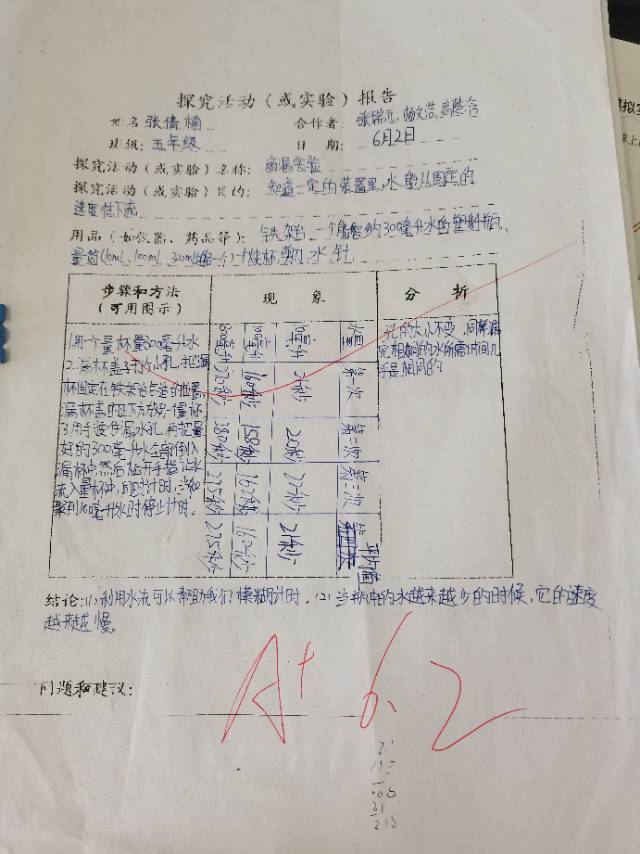 探究活动（或实验）报告
姓名 张倩楠 合作者：张瑞
班级：五年级 日期：6月2日
探究活动（或实验）名称：滴漏实验
探究活动（或实验）目的：知道一定的装置里，水能从固定的
速度往下
用品（如仪器、药品等）：铁架台、一个能容纳300毫升水的塑料瓶、
量筒(10ml 100ml 300ml 水 针
步骤和方法 现象 分析
（可用图示）
1.用一个量杯量300毫升水
2.漏杯盖
杯固定在铁架台合适的位置
漏杯盖的正下方放另一量杯
3.用手按住漏水孔，再把量
好的300毫升水全部倒入
漏杯中，然后松开手指让水
流入量杯中，同时计时，当
到10毫升水时停止计时。
水量 第一次 第二次 第三次 平均值
10毫升 21秒 20秒 22秒 21秒
160秒 158秒 162秒 160秒
235秒
孔的大小不变，同样漏
完相同的水所需时间几
乎是相同的
结论：(1)利用水流可以帮助我们模糊计时。(2)当瓶中的水越来越少的时候，它的速度
越来越慢。
问题和建议：
A+ 6.2